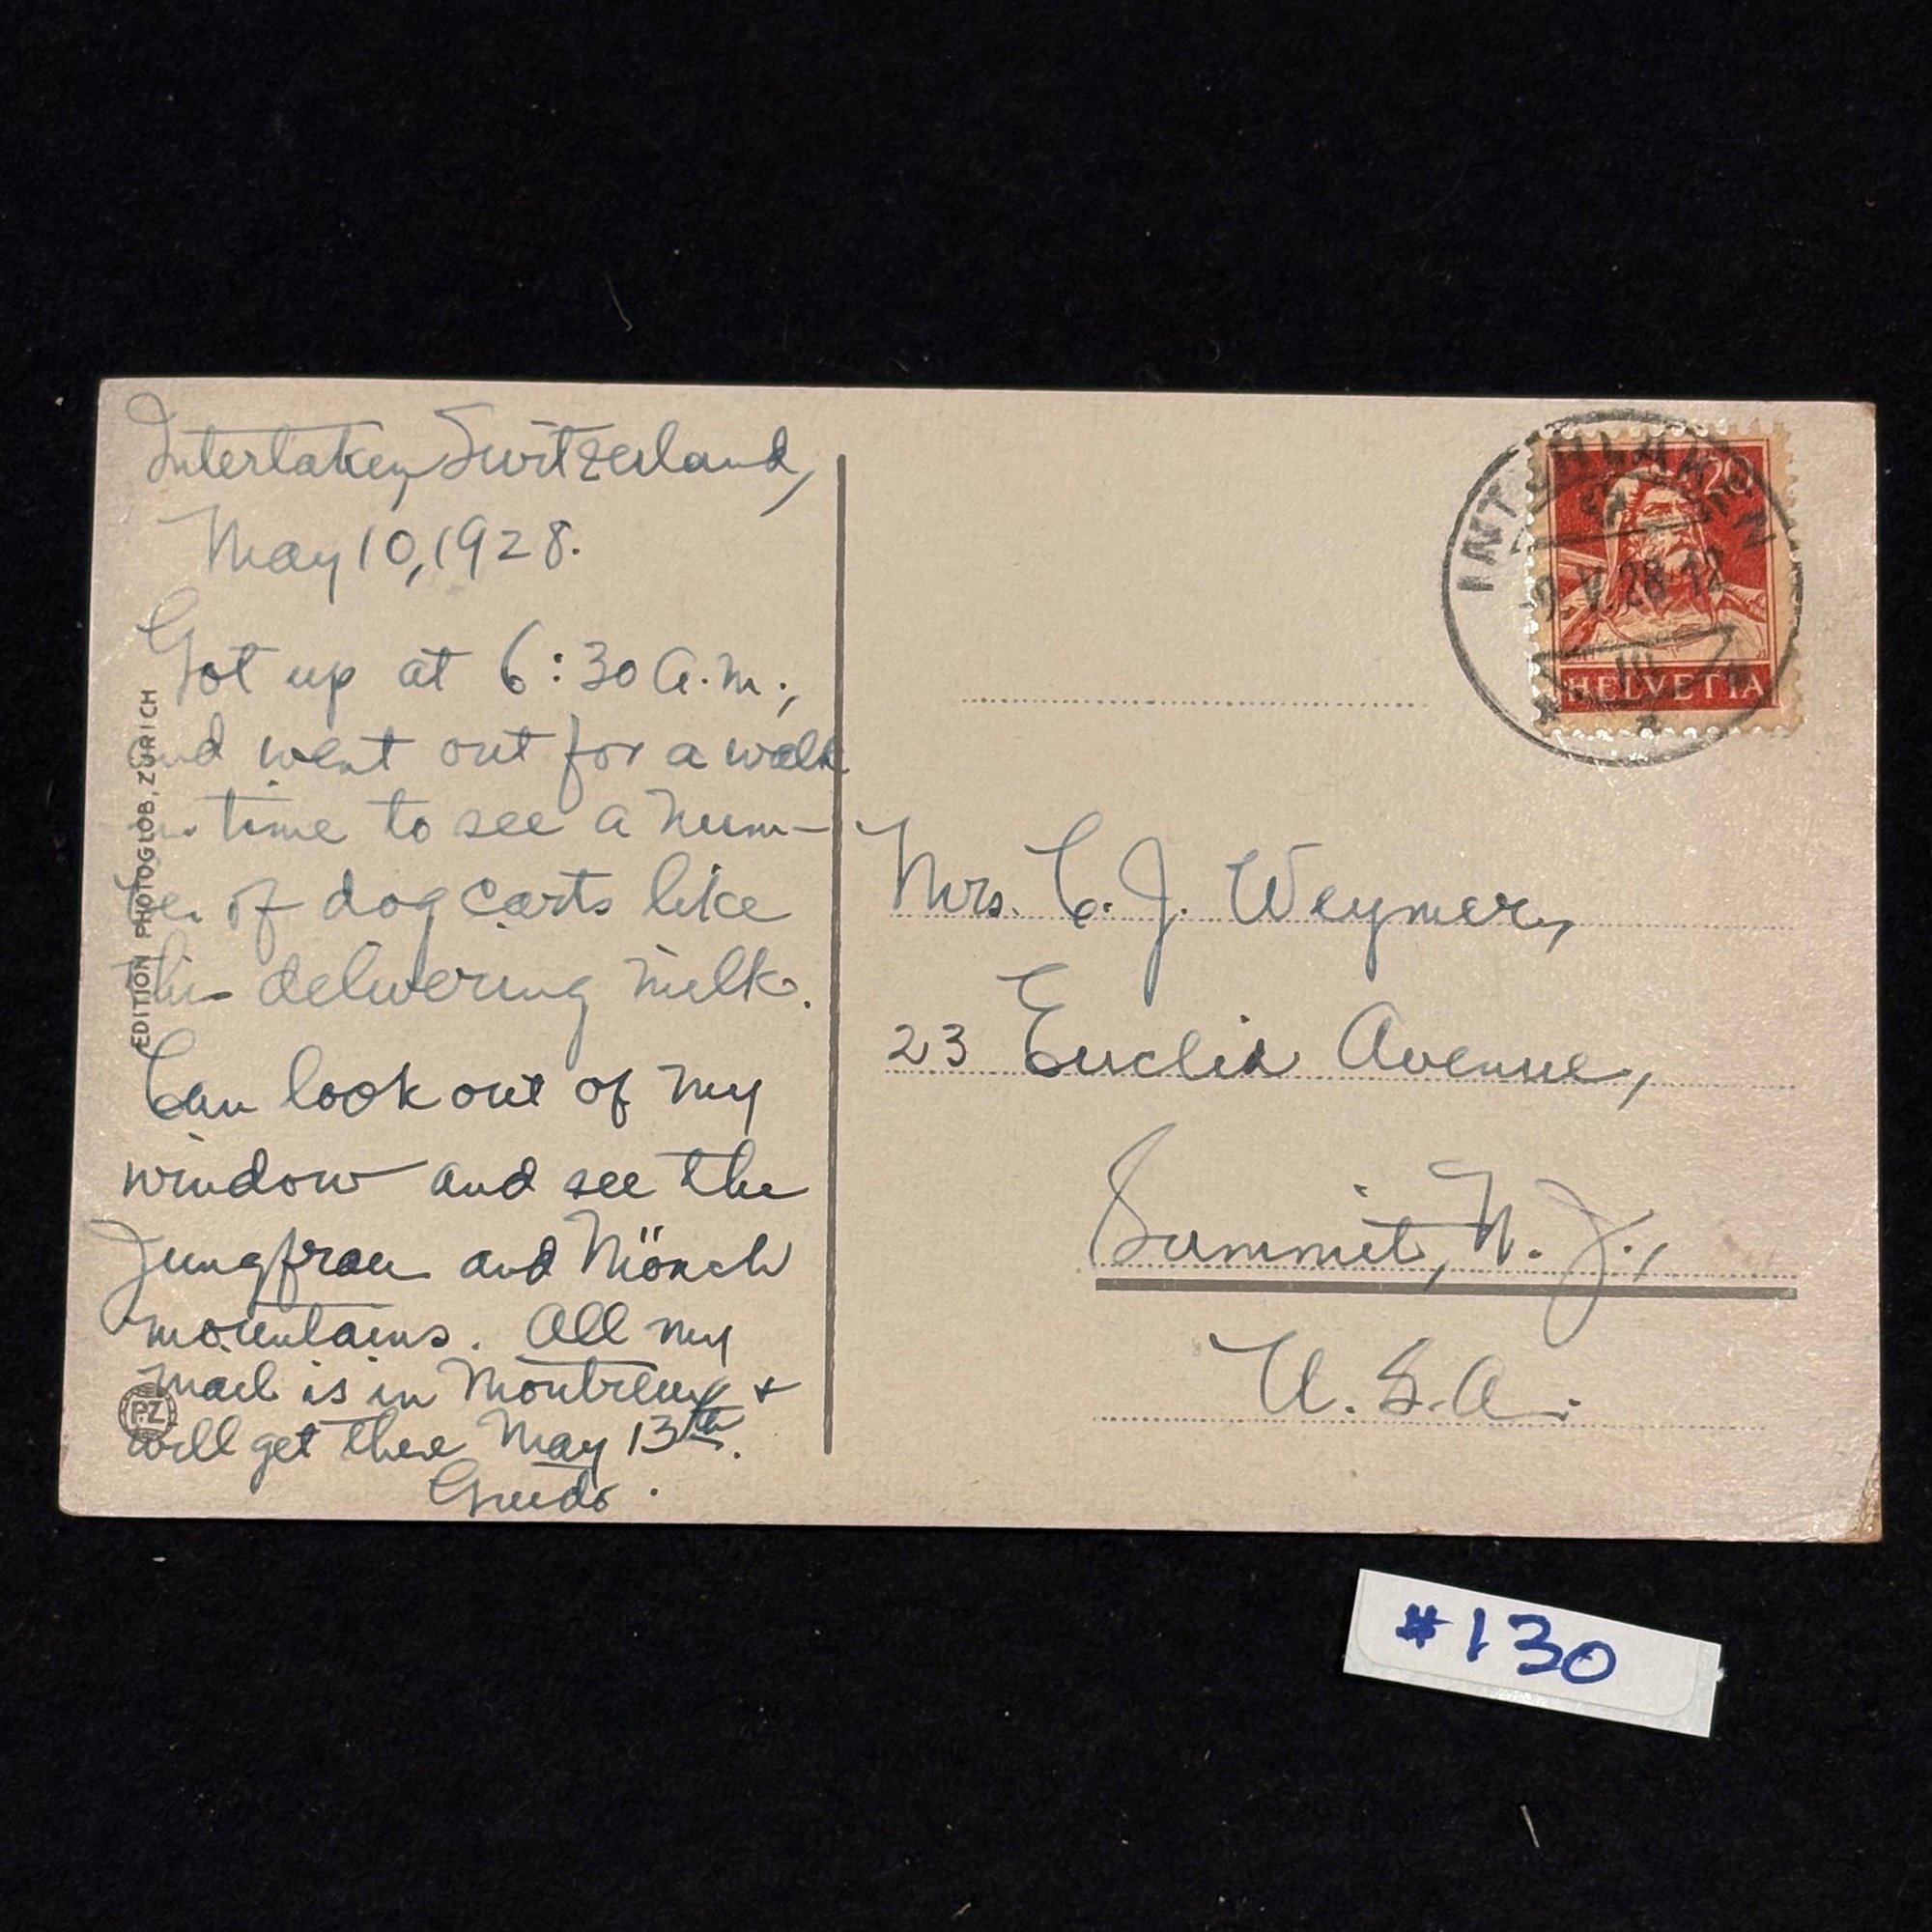 Interlaken, Switzerland,
May 10, 1928.
Got up at 6:30 A.M.,
and went out for a walk
in time to see a num-
ber of dog carts like
this delivering milk.
Can look out of my
window and see the
Jungfrau and Mönch
mountains. All my
mail is in Montreux +
will get there May 13th.
Guido.
EDITION PHOTOGLOB, ZÜRICH
PZ
INTERLAKEN
V. 28 12
III
20
HELVETIA
Mrs. C. J. Weymer,
23 Euclid Avenue,
Summit, N. J.,
U. S. A.
#130